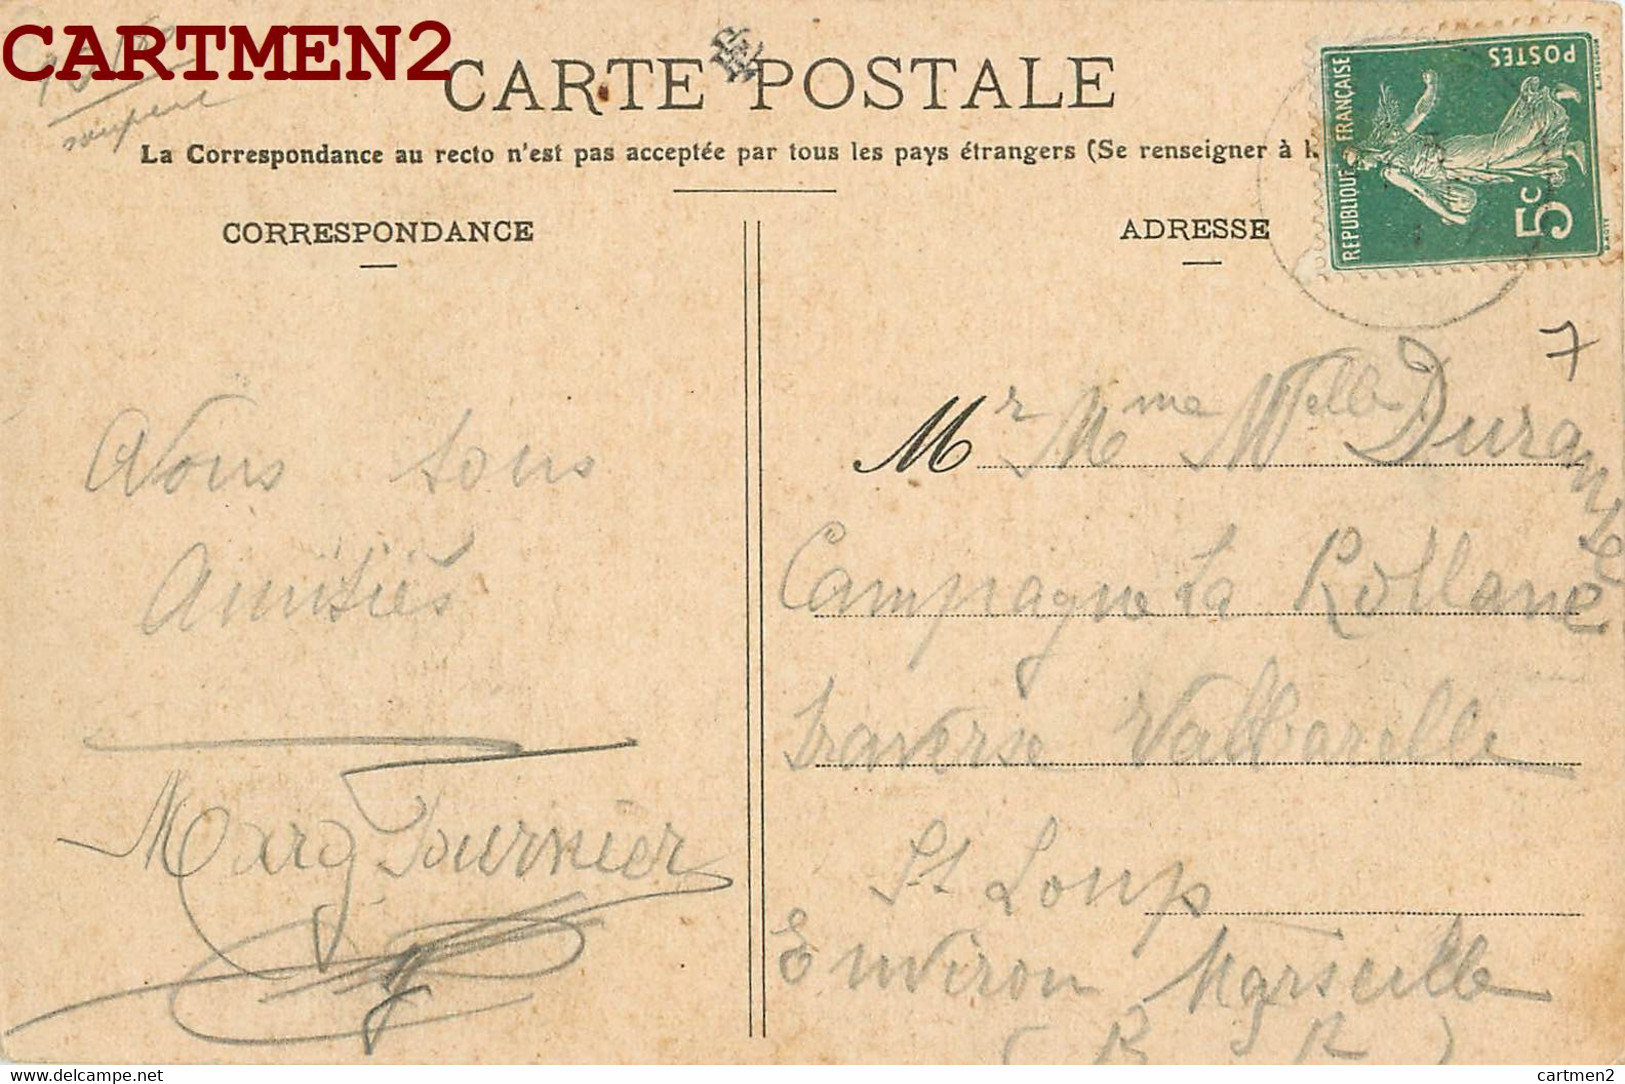 CARTMEN2
CARTE POSTALE
La Correspondance au recto n'est pas acceptée par tous les pays étrangers (Se renseigner à l
REPUBLIQUE FRANÇAISE
POSTES
5c
CORRESPONDANCE
ADRESSE
7
Nous tous
Amitiés
Marg Fournier
Mr Mme Melle Durand
Campagne La Rollane
Traverse Valbarelle
St Loup
Environ Marseille
(B R)
Delcampe.net
cartmen2